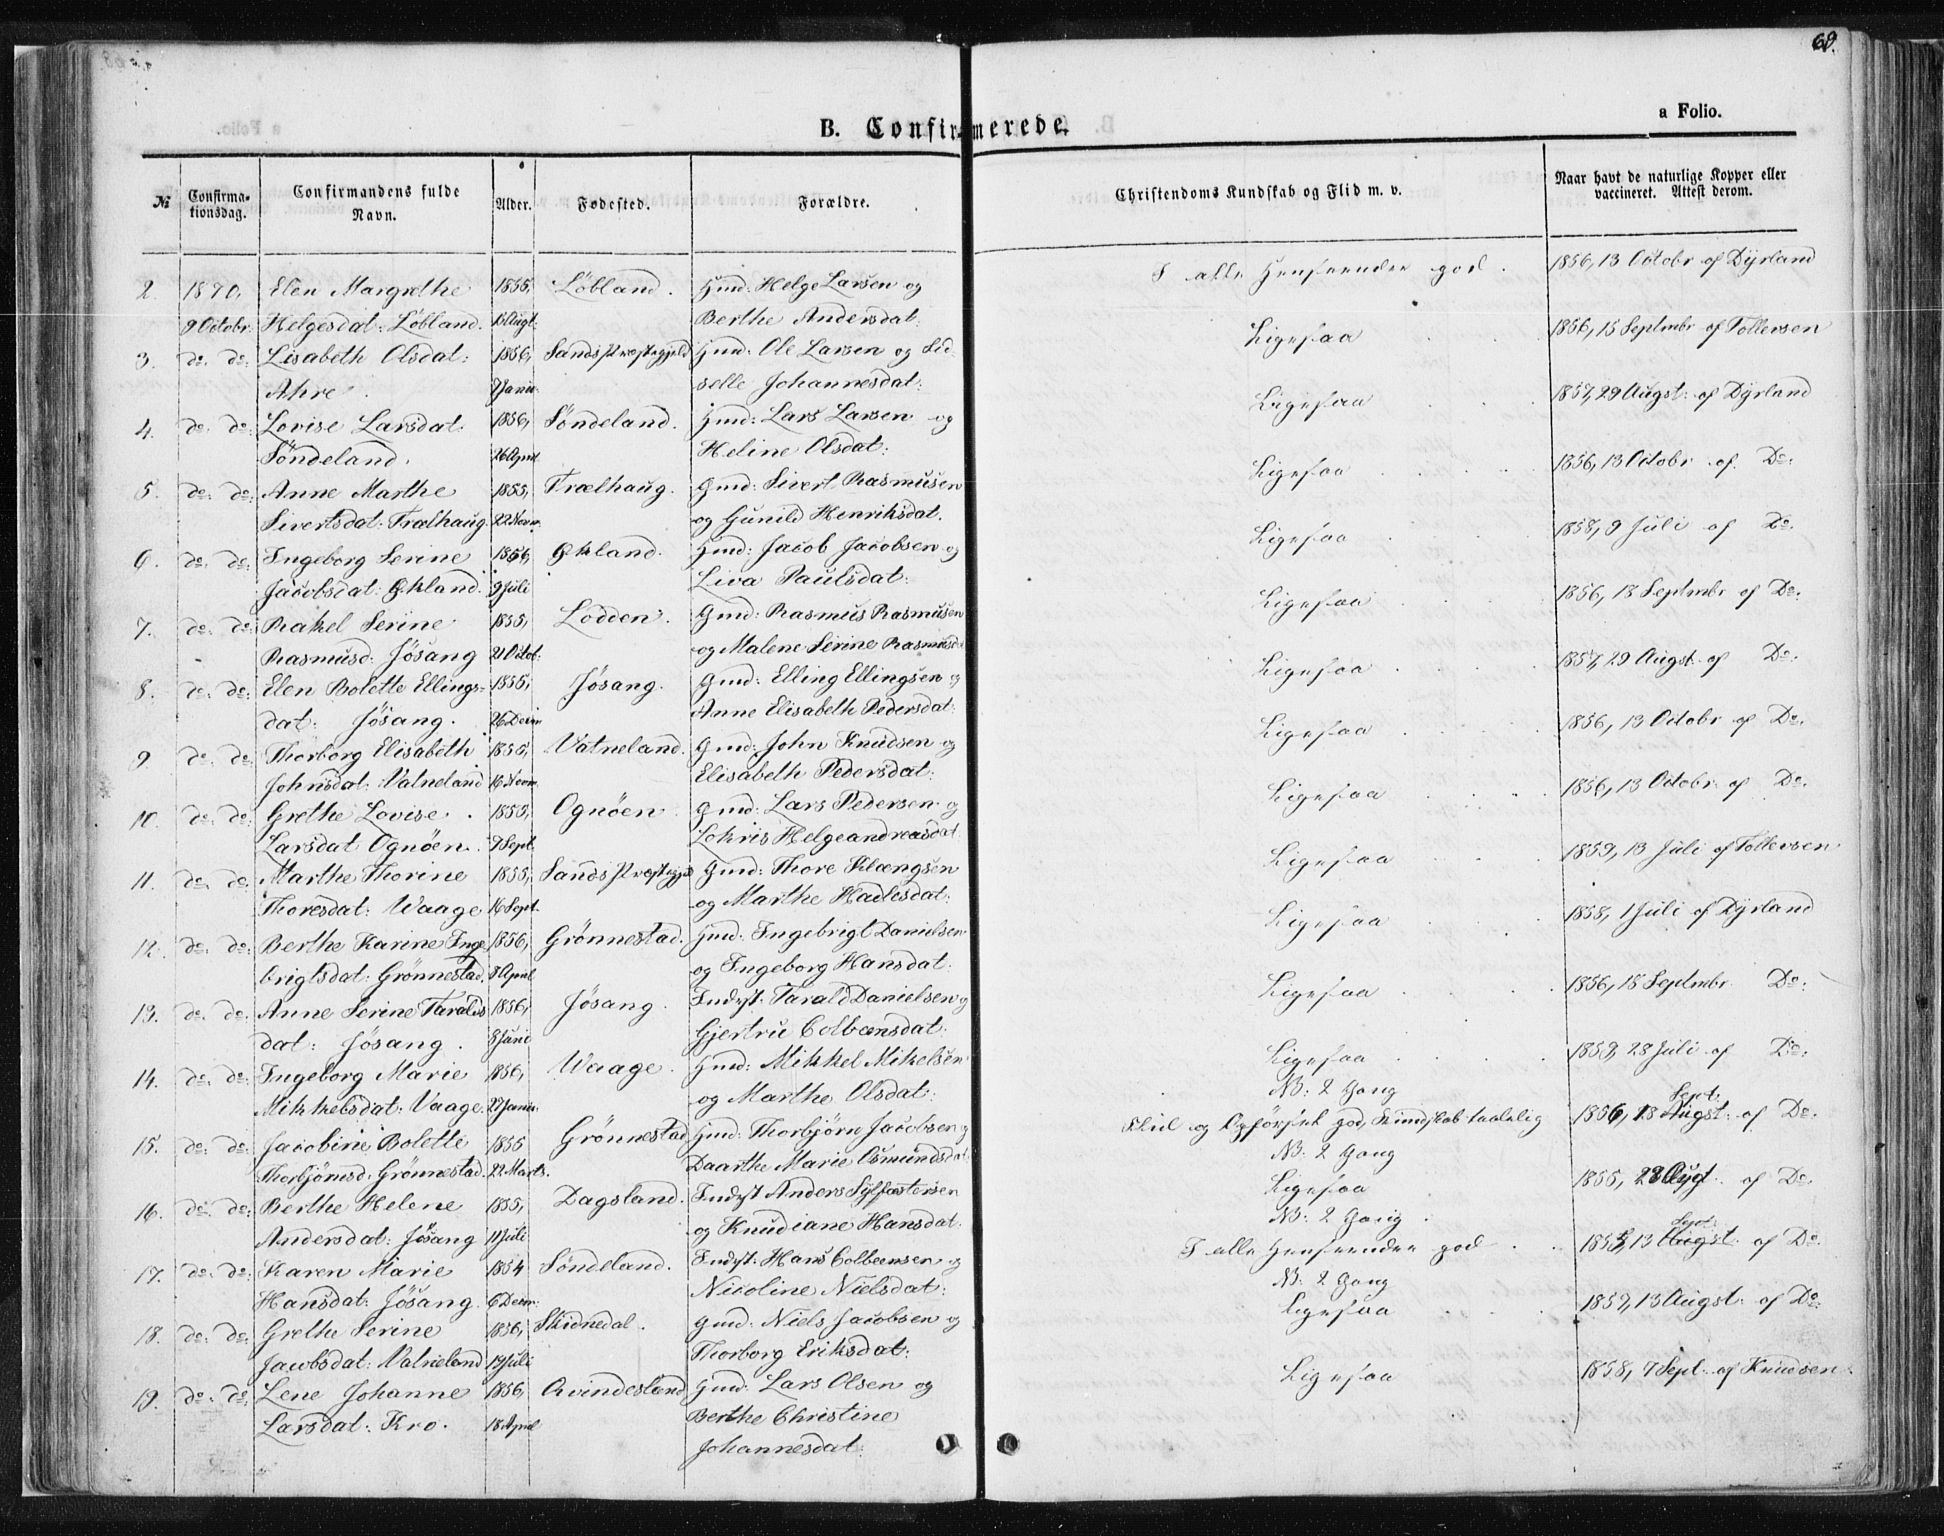 68.
a Folio.
B. Confirmerede.
№ Confirmationsdag. Confirmandens fulde Navn. Alder. Fødested. Forældre. Christendoms Kundskab og Flid m. v. Naar havt de naturlige Kopper eller vaccineret. Attest derom.
2 1870, Elen Margrethe 1855, Løbland. Gmd: Helge Larsen og I alle Henseender god. 1856, 13 Octobr af Dyrland
9 Octobr. Helgesdat: Løbland. Augt: Berthe Andersdat:
3. do: do: Lisabeth Olsdat: 1856, Sands Præstegjeld Hmd: Ole Larsen og Sid- Ligesaa 1856, 15 Septmbr af Tollersen
Ahre. 7 Janu: selle Johannesdat:
4. do: do: Lovise Larsdat: 1856, Søndeland. Hmd: Lars Larsen og Ligesaa 1857, 29 Augst: af Dyrland
Søndeland. 26 April Heline Olsdat:
5. do: do: Anne Marthe 1855, Trælhaug. Gmd: Sivert Rasmusen Ligesaa 1856, 13 Octobr af Do:
Sivertsdat: Trælhaug. 22 Novm. og Gunild Henriksdat.
6. do: do: Ingeborg Serine 1856, Økland. Hmd: Jacob Jacobsen og Ligesaa 1858, 9 Juli af Do:
Jacobsdat: Økland. 9 Juli Liva Paulsdat:
7. do: do: Rakel Serine 1855, Lodden. Gmd: Rasmus Rasmusen Ligesaa 1856, 18 Septmbr af Do:
Rasmusd: Jøsang 21 Octob: og Malene Serine Rasmusd
8. do: do: Elen Bolette Ellings- 1855, Jøsang. Gmd: Elling Ellingsen og Ligesaa 1857, 29 Augst: af Do:
dat: Jøsang. 26 Decm Anne Elisabeth Pedersdat:
9 do: do: Thorborg Elisabeth 1855, Vatneland. Gmd: John Knudsen og Ligesaa 1856, 13 Octobr af Do:
Johnsdat: Vatneland 16 Novm. Elisabeth Pedersdat:
10. do: do: Grethe Lovise 1855, Ognøen. Gmd: Lars Pedersen og Ligesaa 1856, 13 Octobr: af Do:
Larsdat Ognøen. 7 Sept. Lohris Helgeandreasdat
11. do: do: Marthe Thorine 1855, Sands Præstegjeld Gmd: Thore Klængsen Ligesaa 1859, 13 Juli af Tollersen
Thoresdat: Waage 16 Sept. og Marthe Hadlesdat:
12. do: do: Berthe Karine Inge 1856, Grønnestad. Hmd: Ingebrigt Danielsen Ligesaa 1858, 1 Juli af Dyrland
brigtsdat: Grønnestad. 8 April og Ingeborg Hansdat:
13. do: do: Anne Serine Taralds 1856, Jøsang. Indst: Tarald Danielsen og Ligesaa 1856, 18 Septmbr Do:
dat: Jøsang. 8 Juni Gjertru Colbensdat:
14. do: do: Ingeborg Marie 1856, Waage. Hmd: Mikkel Mikelsen Ligesaa 1859, 28 Juli af Do:
Mikkelsdat: Vaage. 27 Janu: og Marthe Olsdat: NB: 2 Gang
15. do: do: Jacobine Bolette 1855 Grønnestad Hmd: Thorbjørn Jacobsen og Flid og Opførsel god, Kundskab taalelig 1856, 18 Augst: Sept: af Do:
Thorbjørnsd: Grønnestad. 22 Marts. Daarthe Marie Osmundsdat: NB: 2 Gang
16. do: do: Berthe Helene 1855, Dagsland. Indst Anders Sylfæstersen Ligesaa 1855, 28 Augt af Do:
Andersdat: Jøsang 11 Juli og Knudiane Hansdat: NB: 2 Gang.
17. do: do: Karen Marie 1854 Søndeland. Indst: Hans Colbeensen og I alle Henseender god 1855, 13 Augst: Sept: af Do:
Hansdat: Jøsang. 6 Decm: Nicoline Nielsdat: NB: 2 Gang
18. do: do: Grethe Serine 1856, Skidnedal. Gmd: Niels Jacobsen og Ligesaa 1857, 13 Augst: af Do:
Jacobsdat: Vatneland 19 Juli Thorborg Eriksdat:
19. do: do: Lene Johanne 1856, Qvindesland Hmd: Lars Olsen og Ligesaa 1858, 7 Sept: af Knudsen
Larsdat: Kro. 18 April Berthe Christine
Johannesdat: